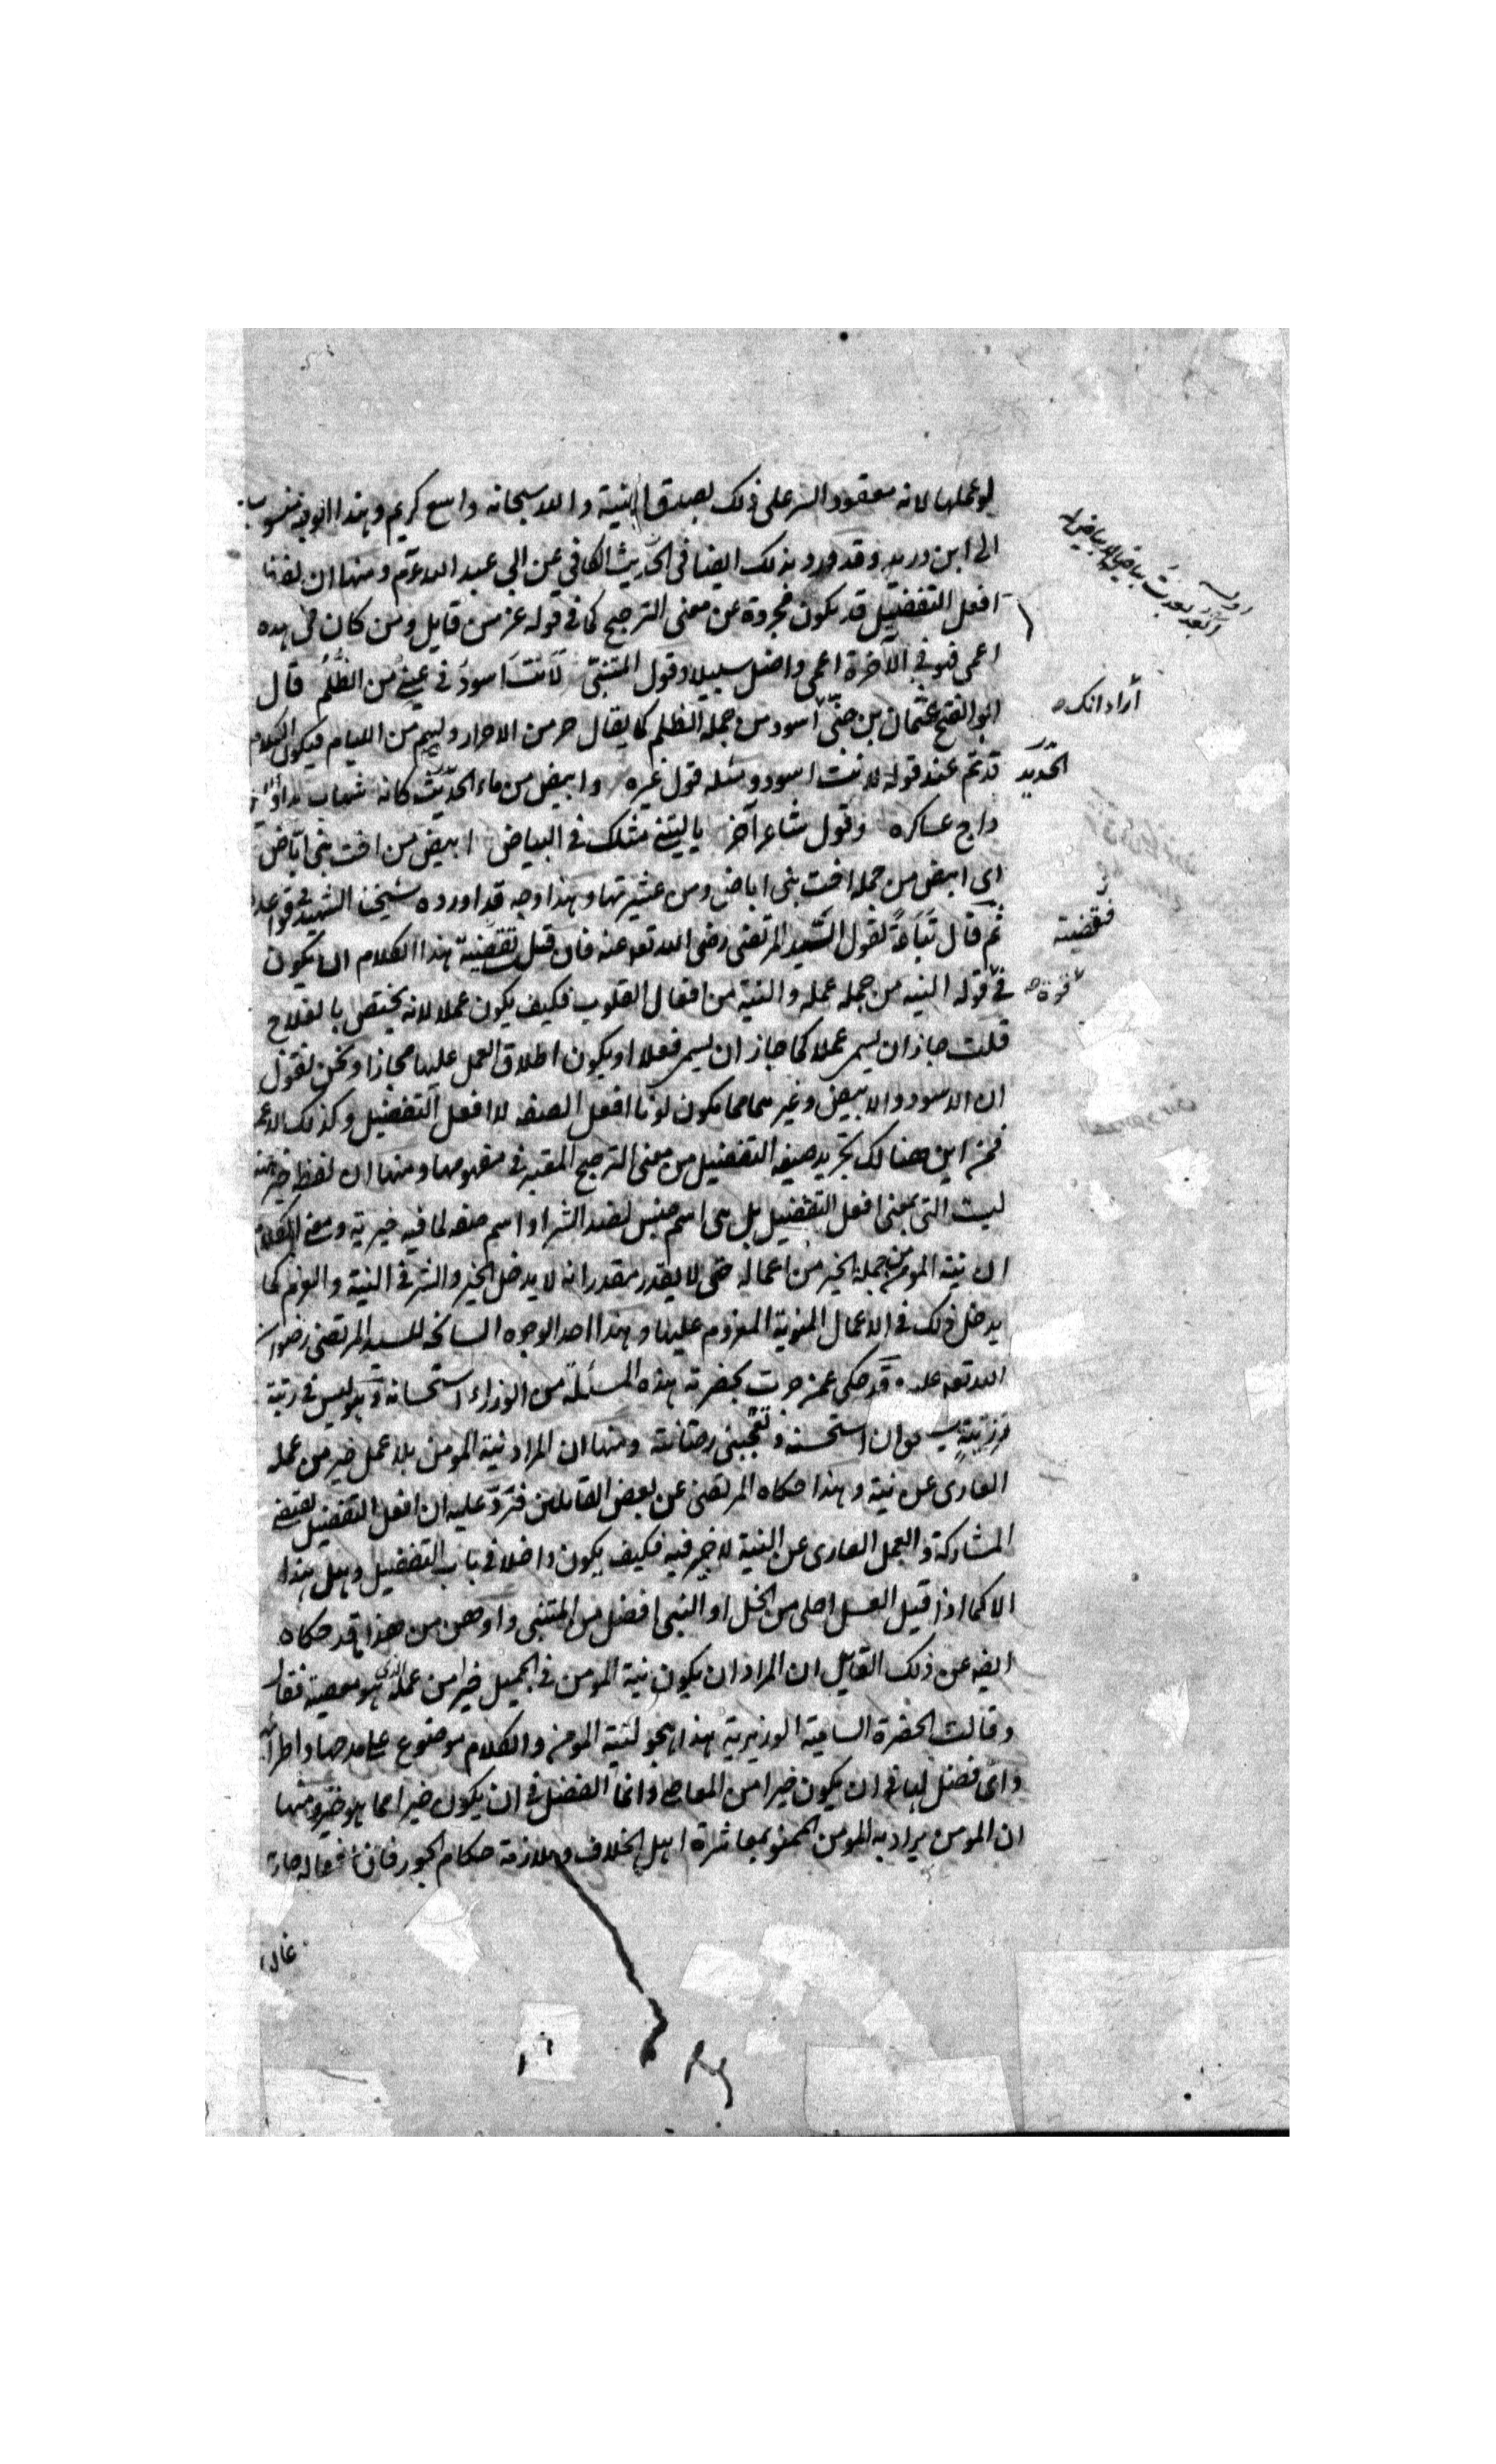 لو عملها لانه معقود السر على ذلك بصدق النية والله سبحانه واسع كريم وهذا الوجه منسوب
الى ابن دريد وقد ورد بذلك ايضا فى الحديث الكافى عن ابى عبد الله ومنها ان لفظة
افعل التفضيل قد يكون مجردة عن معنى الترجيح كما فى قوله عز من قايل ومن كان فى هذه
اعمى فهو فى الآخرة اعمى واضل سبيلا وقول المتنبى لَاَنْتَ اَسودُ فى عينى من الظُّلَمُ قال
ابو الفتح عثمان بن جنى اسود من جملة الظلم كما يقال حر من الاحرار ولييم من الليام فيكون الكلام
قد تم عند قوله لانت اسود ومثله قول غيره وابيض من ماء الحديث كانه شهاب بدا والليل
داج عساكره وقول شاعر آخر يا ليتنى مثلك فى البياض ابيض من اخت بنى اباض
اى ابيض من جملة اخت بنى اباض ومن عشيرتها وهذا وجه قد اورده شيخنا الشهيد فى قواعده
ثم قال تَبَاعَةً لقول السّيد المرتضى رضى الله تعه عنه فان قيل تقضية هذا الكلام ان يكون
فى قوله النية من جملة عمله والنية من افعال القلوب فكيف يكون عملا لانه يختص بالعلاج
قلت جاز ان يسمى عملا كما جاز ان يسمى فعلا او يكون اطلاق العمل عليها مجازا ونحن نقول
ان الاسود والابيض وغيرهما مما يكون لونا افعل الصفه لا افعل التفضيل وكذلك الاعمى
فمن اين هنالك تجريد صيغة التفضيل من معنى الترجيح المعتبر فى مفهومها ومنها ان لفظة خير
ليست التى بمعنى افعل التفضيل بل هى اسم جنس لضد الشر او اسم صفه لما فيه خيرية ومعنى الكلام
ان نية المومن من جملة الخير من اعماله حتى لا يقدر مقدر انه لا يدخل الخير والشر فى النية والعزم كما
يدخل ذلك فى الاعمال المنوية المعزوم عليها وهذا احد الوجوه السانحه للسيد المرتضى رضوان
الله تعه عليه وقد حكى عمن جرت بحضرته هذه المسئلة من الوزراء استحسانه وهو ليس فى رتبة
استحسنه وتعجبنى رصانته ومنها ان المراد نية المومن بلا عمل خير من عمله
العارى عن نية وهذا حكاه المرتضى عن بعض القايلين فَرَدَّ عليه ان افعل التفضيل يقتضى
المشاركة والعمل العارى عن النية لا خير فيه فكيف يكون داخلا فى باب التفضيل وهل هذا
الا كما اذا قيل العسل احلى من الخل او النبى افضل من المتنبى واوهن من هذا قد حكاه
ايضه عن ذلك القايل ان المراد ان يكون نية المومن فى الجميل خيرا من عمله الذى هو معصية فقال
وقالت الحضرة السامية الوزيرية هذا هجو لنية المومن والكلام موضوع على مدحها واطرائها
واى فضل لها فى ان يكون خيرا من المعاصى وانما الفضل فى ان يكون خيرا مما هو خير ومنها
ان المومن يراد به المومن الممنو بمعاشرة اهل الخلاف وملازمة حكام الجور فان افعاله جارية
أراد انك
الحديد
فقضيته
قوة